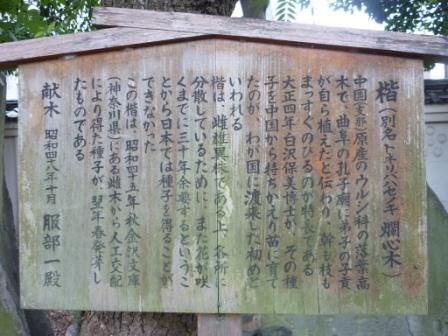 楷（別名トネリバハゼノキ 爛心木）
中国（支那）原産のウルシ科の落葉高
木で、曲阜の孔子廟に弟子の子貢
が自ら植えたと伝わり、幹も枝も
まっすぐのびるのが特長である
大正四年白沢保美博士が、その種
子を中国から持ちかえり苗に育て
たのが、わが国に渡来した初めと
いわれる
楷は、雌雄異株である上、各所に
分散しているために、また花が咲
くまでに三十年余要するというこ
とから日本では種子を得ることが
できなかった
この楷は、昭和四十五年秋金沢文庫
（神奈川県）にある雌木から人工交配
により得た種子が、翌年春発芽し
たものである
献木 昭和四十八年十月 服部一殿